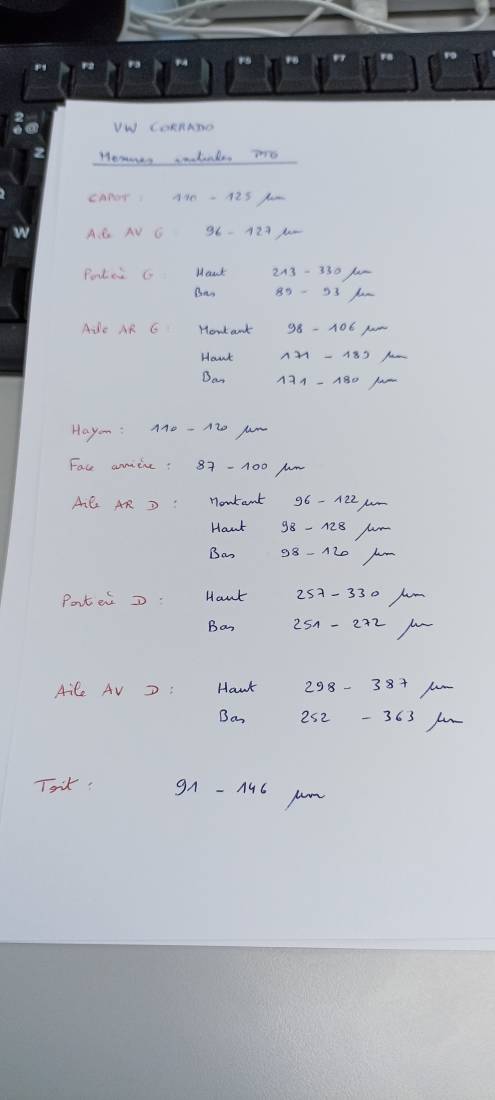 F1 F2 F3 F4 F5 F6 F7 F8 F9
2 é @
Z
W
VW CORRADO
Mesures initiales PTG
CAPOT : 110 - 125 µm
Aile AV G 96 - 127 µm
Portière G : Haut 213 - 330 µm
Bas 89 - 93 µm
Aile AR G : Montant 98 - 106 µm
Haut 171 - 189 µm
Bas 171 - 180 µm
Hayon : 110 - 120 µm
Face arrière : 87 - 100 µm
Aile AR D : Montant 96 - 122 µm
Haut 98 - 128 µm
Bas 98 - 120 µm
Portière D : Haut 257 - 330 µm
Bas 251 - 272 µm
Aile AV D : Haut 298 - 387 µm
Bas 252 - 363 µm
Toit : 91 - 146 µm